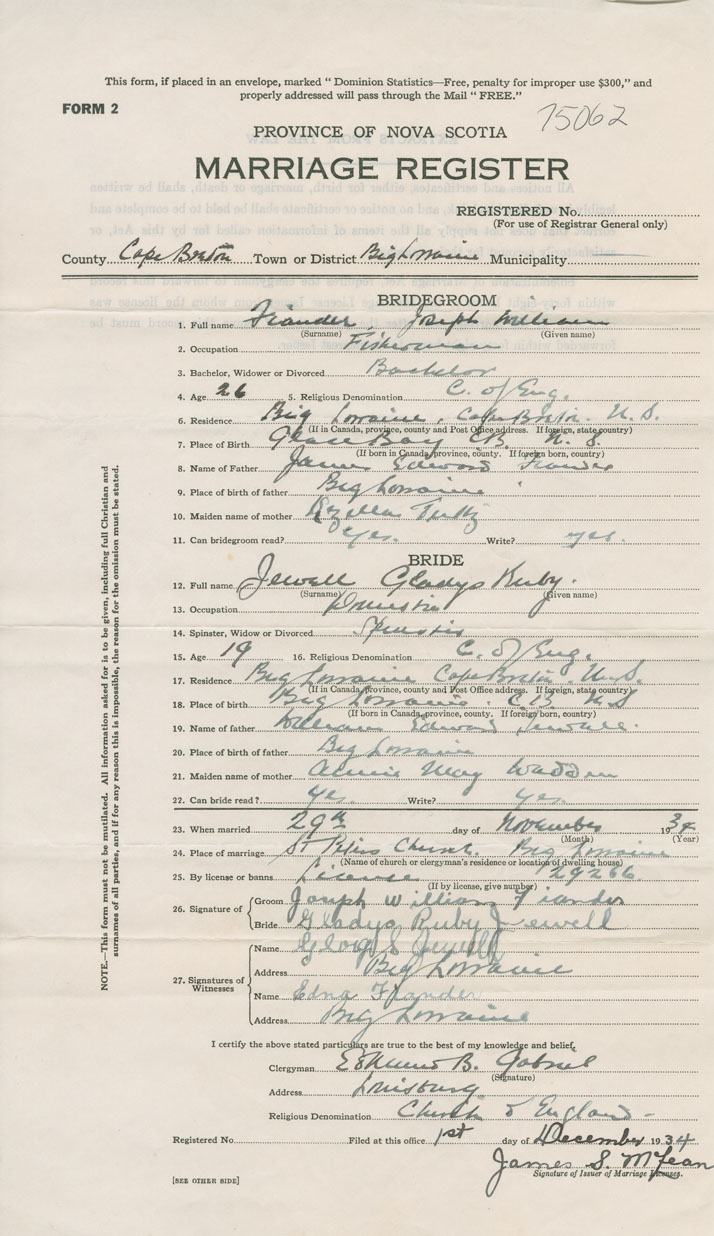 This form, if placed in an envelope, marked " Dominion Statistics—Free, penalty for improper use $300," and
properly addressed will pass through the Mail " FREE."
FORM 2
75062
PROVINCE OF NOVA SCOTIA
MARRIAGE REGISTER
REGISTERED No.
(For use of Registrar General only)
County Cape Breton Town or District Big Lorraine Municipality
BRIDEGROOM
1. Full name Fiander, Joseph William
(Surname) (Given name)
2. Occupation Fisherman
3. Bachelor, Widower or Divorced Bachelor
4. Age 26 5. Religious Denomination C. of Eng.
6. Residence Big Lorraine, Cape Breton. N. S.
(If in Canada, province, county and Post Office address. If foreign, state country)
7. Place of Birth Glace Bay C.B. N. S.
(If born in Canada, province, county. If foreign born, country)
8. Name of Father James Edward Fiander
9. Place of birth of father Big Lorraine
10. Maiden name of mother
11. Can bridegroom read? Yes. Write? yes.
BRIDE
12. Full name Jewell Gladys Ruby.
(Surname) (Given name)
13. Occupation Domestic
14. Spinster, Widow or Divorced Spinster
15. Age 19 16. Religious Denomination C. of Eng.
17. Residence Big Lorraine Cape Breton. N. S.
(If in Canada, province, county and Post Office address. If foreign, state country)
18. Place of Birth Big Lorraine. C.B. N.S
(If born in Canada, province, county. If foreign born, country)
19. Name of father William Edward Jewell.
20. Place of birth of father Big Lorraine
21. Maiden name of mother Annie May Wadden
22. Can bride read? yes. Write? yes.
23. When married 29th day of November 1934
(Month) (Year)
24. Place of marriage St Peters Church. Big Lorraine
(Name of church or clergyman's residence or location of dwelling house)
25. By license or banns License 29266
(If by license, give number)
26. Signature of
Groom Joseph William Fiander
Bride Gladys Ruby Jewell
27. Signatures of Witnesses
Name Jewell
Address Big Lorraine
Name Edna Fiander
Address Big Lorraine
I certify the above stated particulars are true to the best of my knowledge and belief,
Clergyman Edmund B. Gabriel
(Signature)
Address Louisburg
Religious Denomination Church of England -
Registered No. Filed at this office 1st day of December 1934
James S. McLean
Signature of Issuer of Marriage Licenses.
[SEE OTHER SIDE]
NOTE.—This form must not be mutilated. All information asked for is to be given, including full Christian and
surnames of all parties, and if for any reason this is impossible, the reason for the omission must be stated.